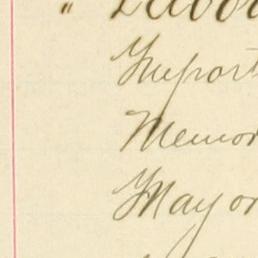 " Labor
Import
Memor
Mayor